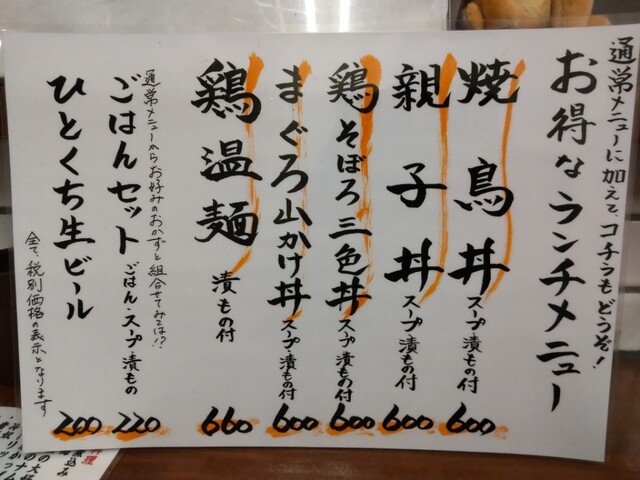 通常メニューに加えて、コチラもどうぞ！
お得なランチメニュー
焼鳥丼 スープ 漬もの付 600
親子丼 スープ 漬もの付 600
鶏そぼろ三色丼 スープ・漬もの付 600
まぐろ山かけ丼 スープ・漬もの付 600
鶏温麺 漬もの付 660
通常メニューからお好みのおかずと組合せてみては!?
ごはんセット ごはん・スープ・漬もの 220
ひとくち生ビール 200
全て、税別価格の表示となります